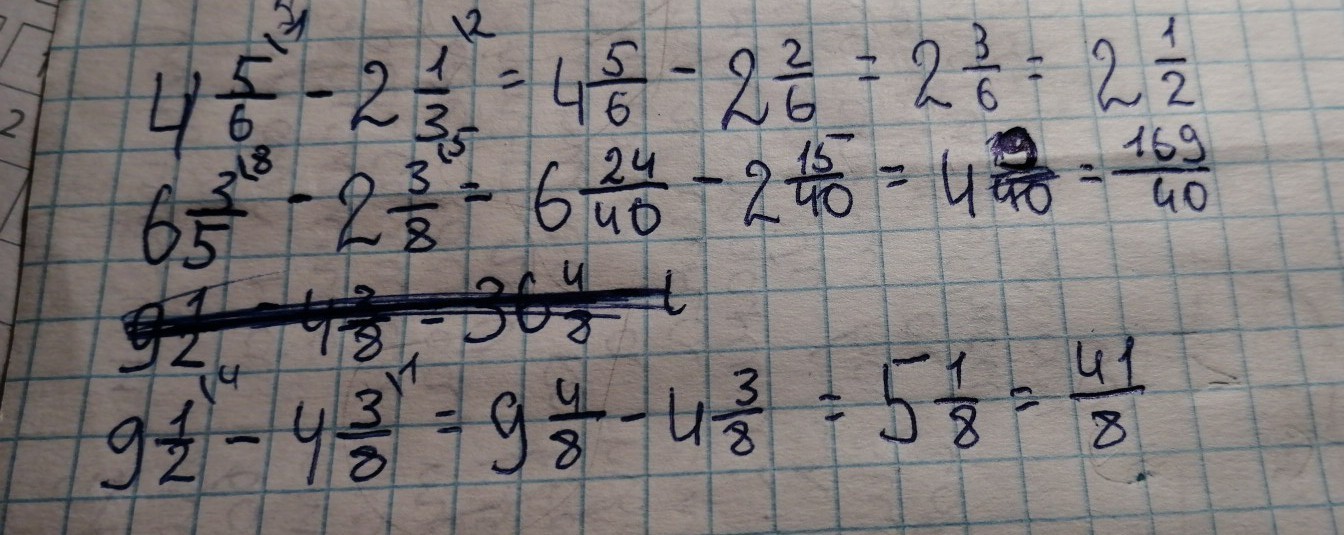 4 5/6 \1 - 2 1/3 \2 = 4 5/6 - 2 2/6 = 2 3/6 = 2 1/2
6 3/5 \8 - 2 3/8 \5 = 6 24/40 - 2 15/40 = 4 9/40 = 169/40
9 1/2 \4 - 4 3/8 \1 = 9 4/8 - 4 3/8 = 5 1/8 = 41/8
2